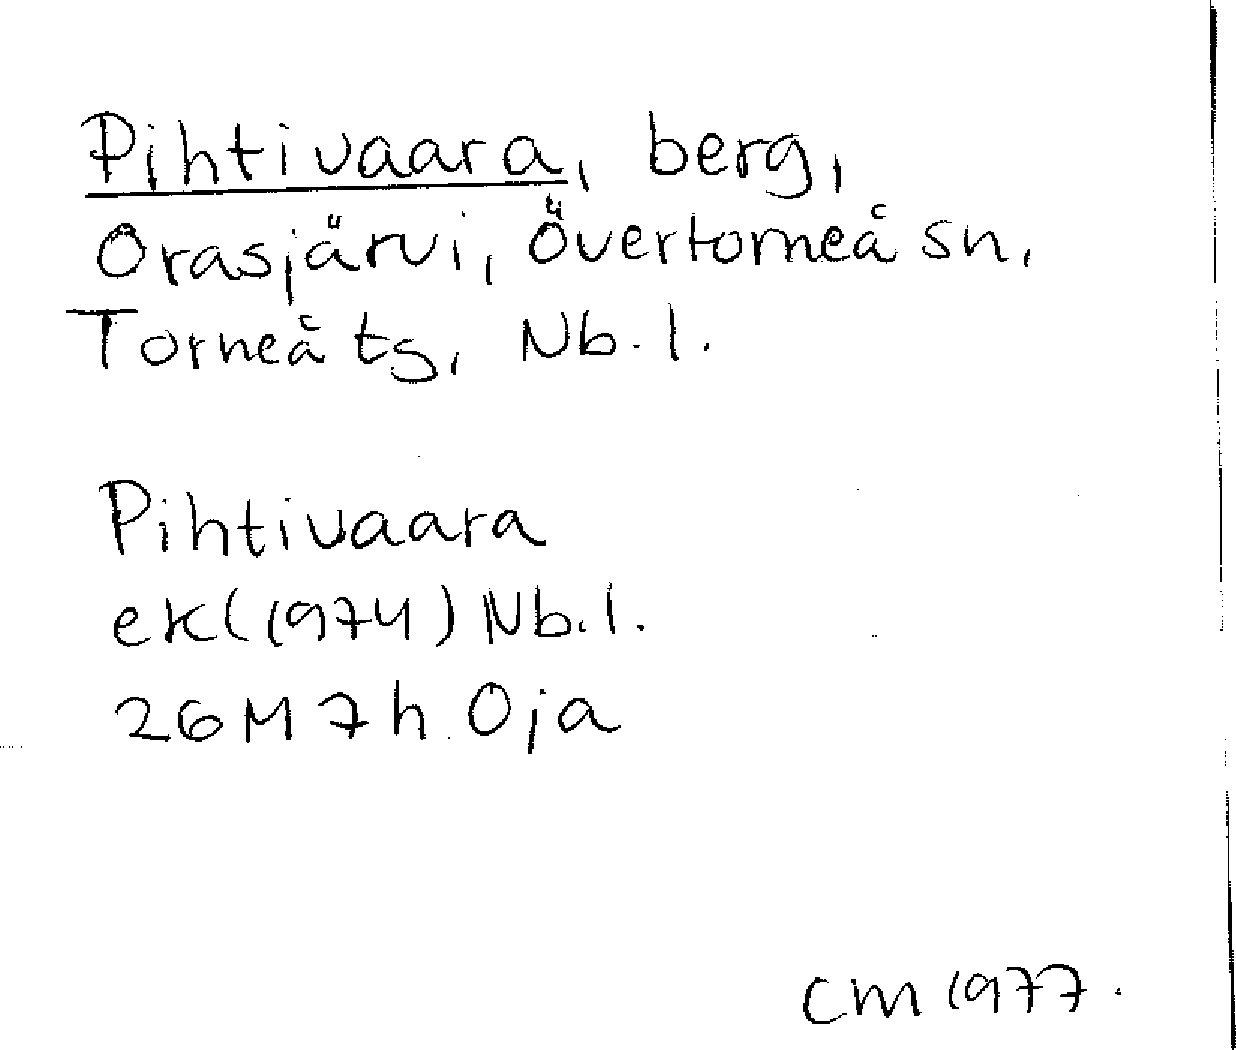 Pihtivaara, berg,
Orasjärvi, Övertorneå sn,
Torneå ts, Nb. l.
Pihtivaara
ek (1974) Nb. l.
26M 7h Oja
CM 1977.